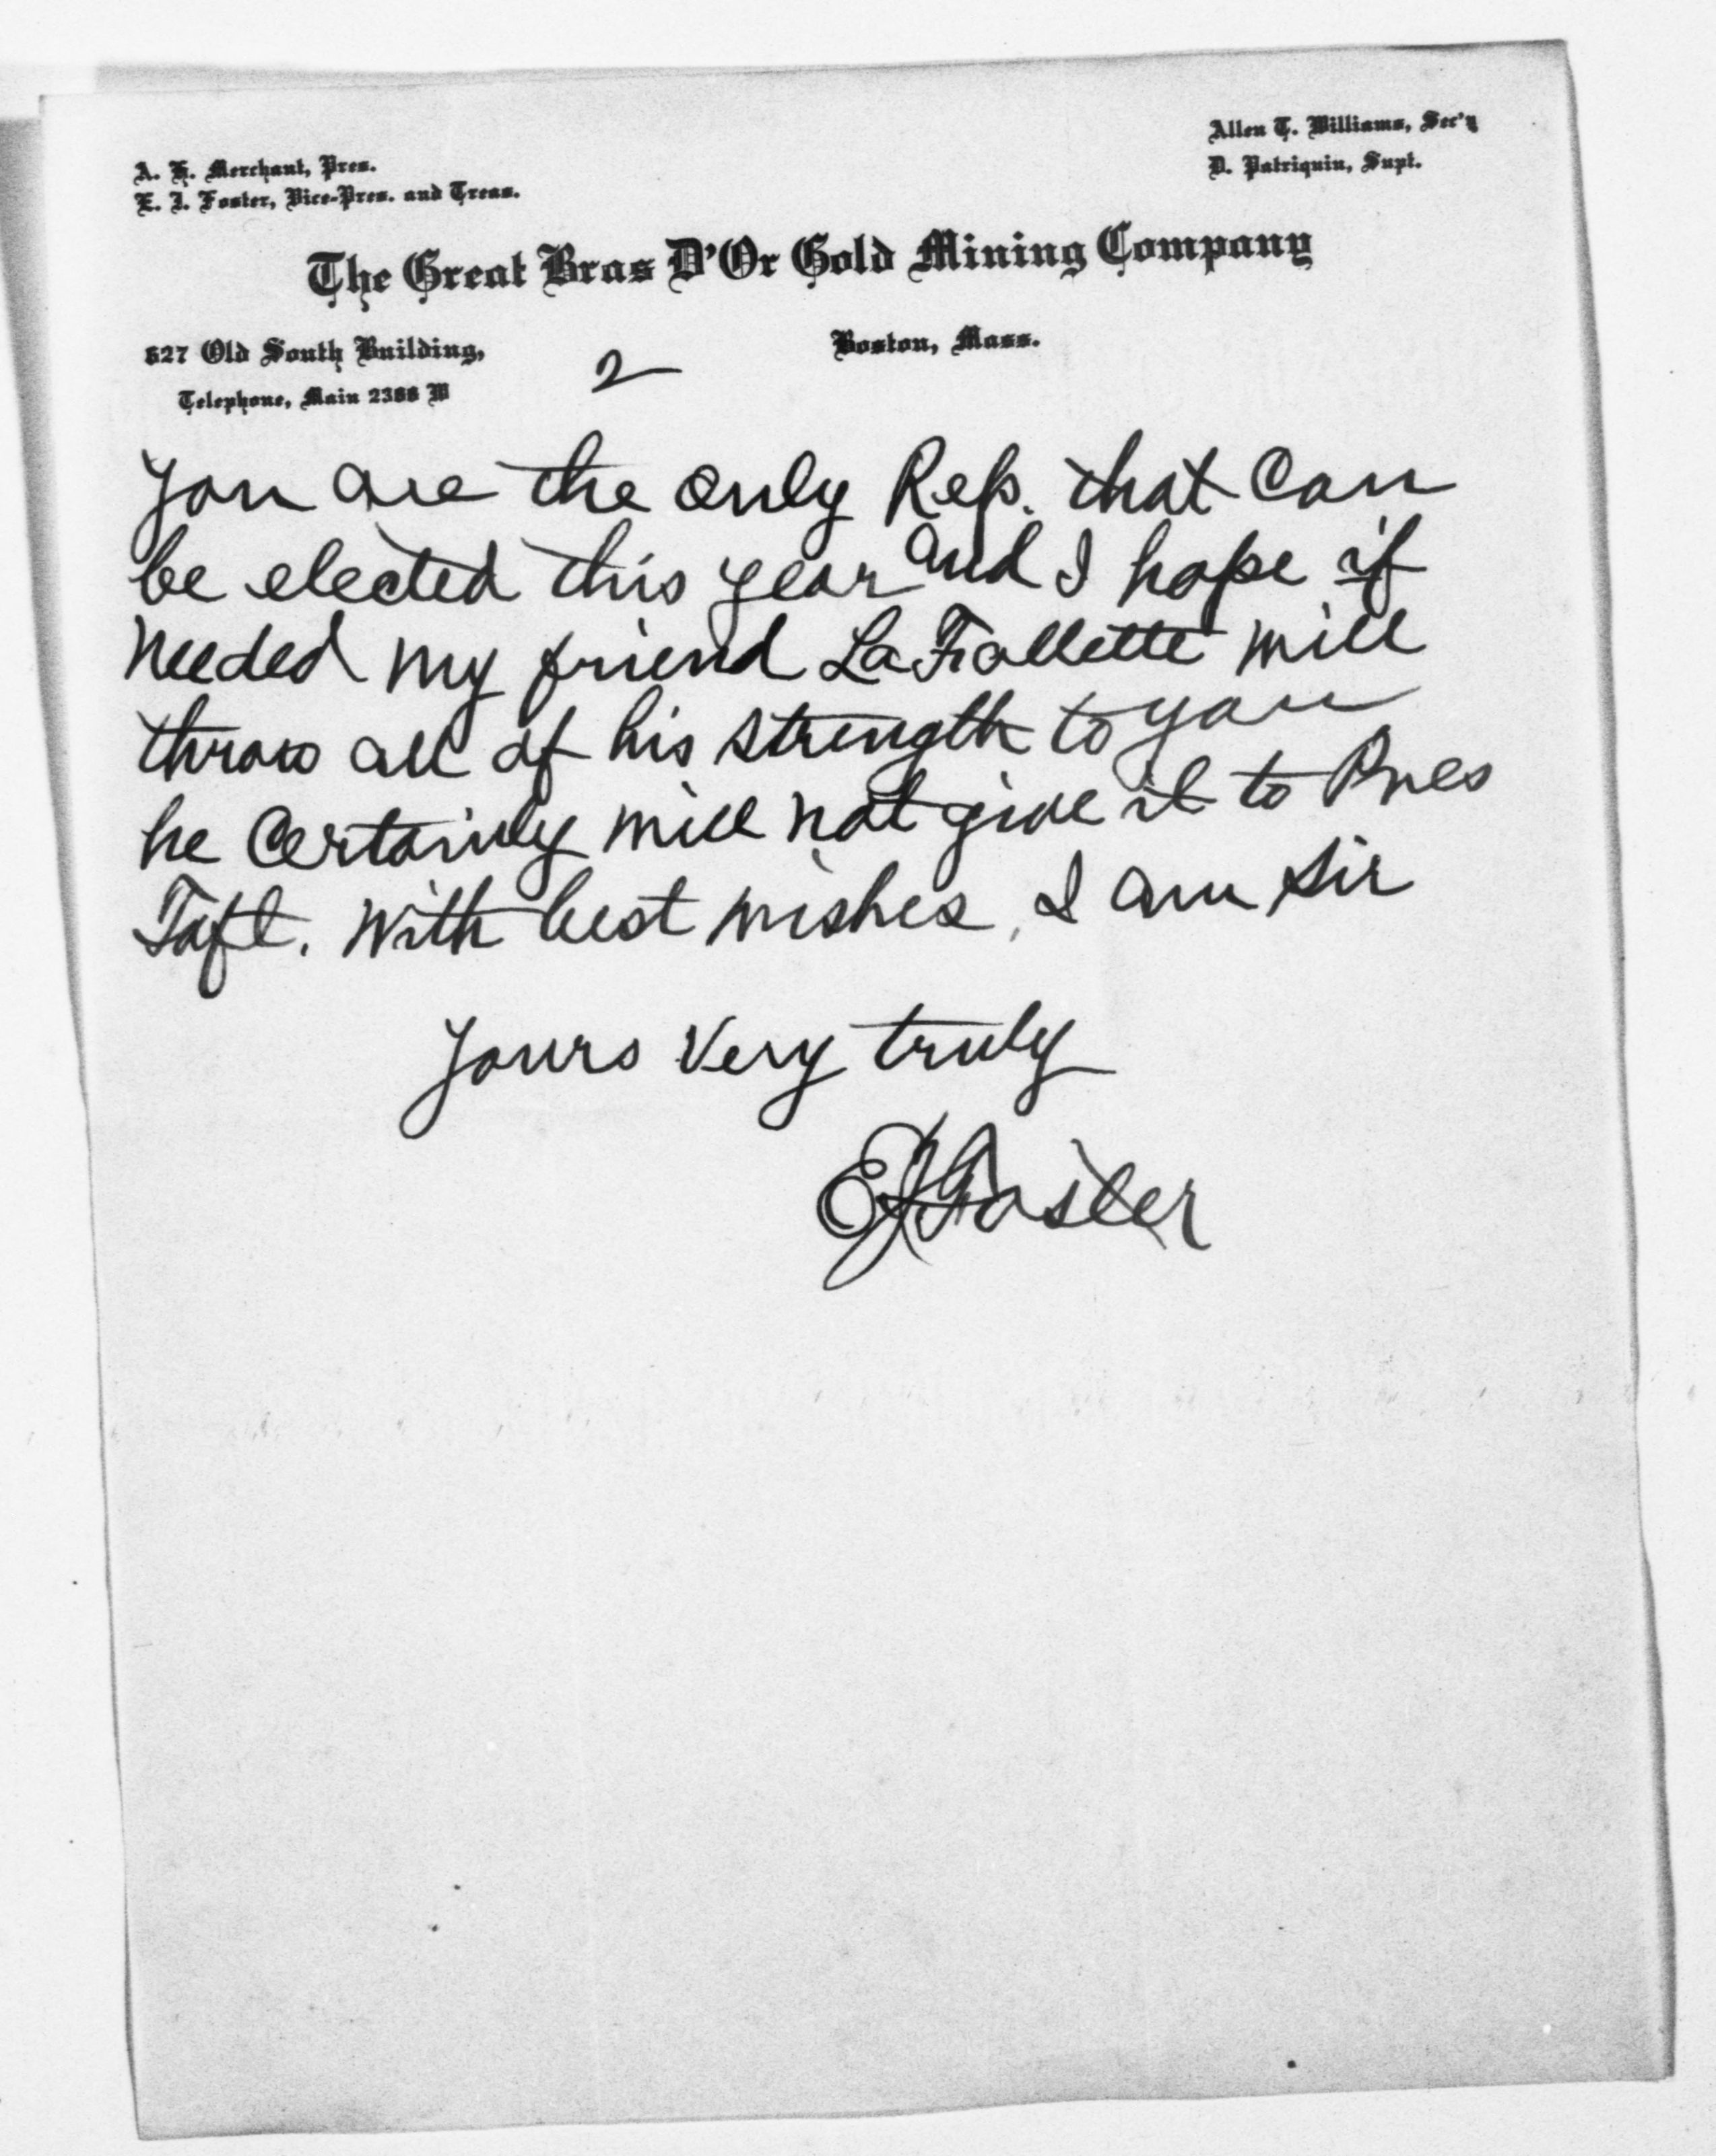 Allen T. Williams, Sec'y
D. Patriquin, Supt.
A. H. Merchant, Pres.
E. J. Foster, Vice-Pres. and Treas.
The Great Bras D'Or Gold Mining Company
627 Old South Building,
Boston, Mass.
Telephone, Main 2388 W
2
You are the only Rep. that can
be elected this year and I hope if
needed my friend LaFollette will
throw all of his strength to you
he certainly will not give it to Pres
Taft. With best wishes, I am sir
Yours very truly
EJFoster